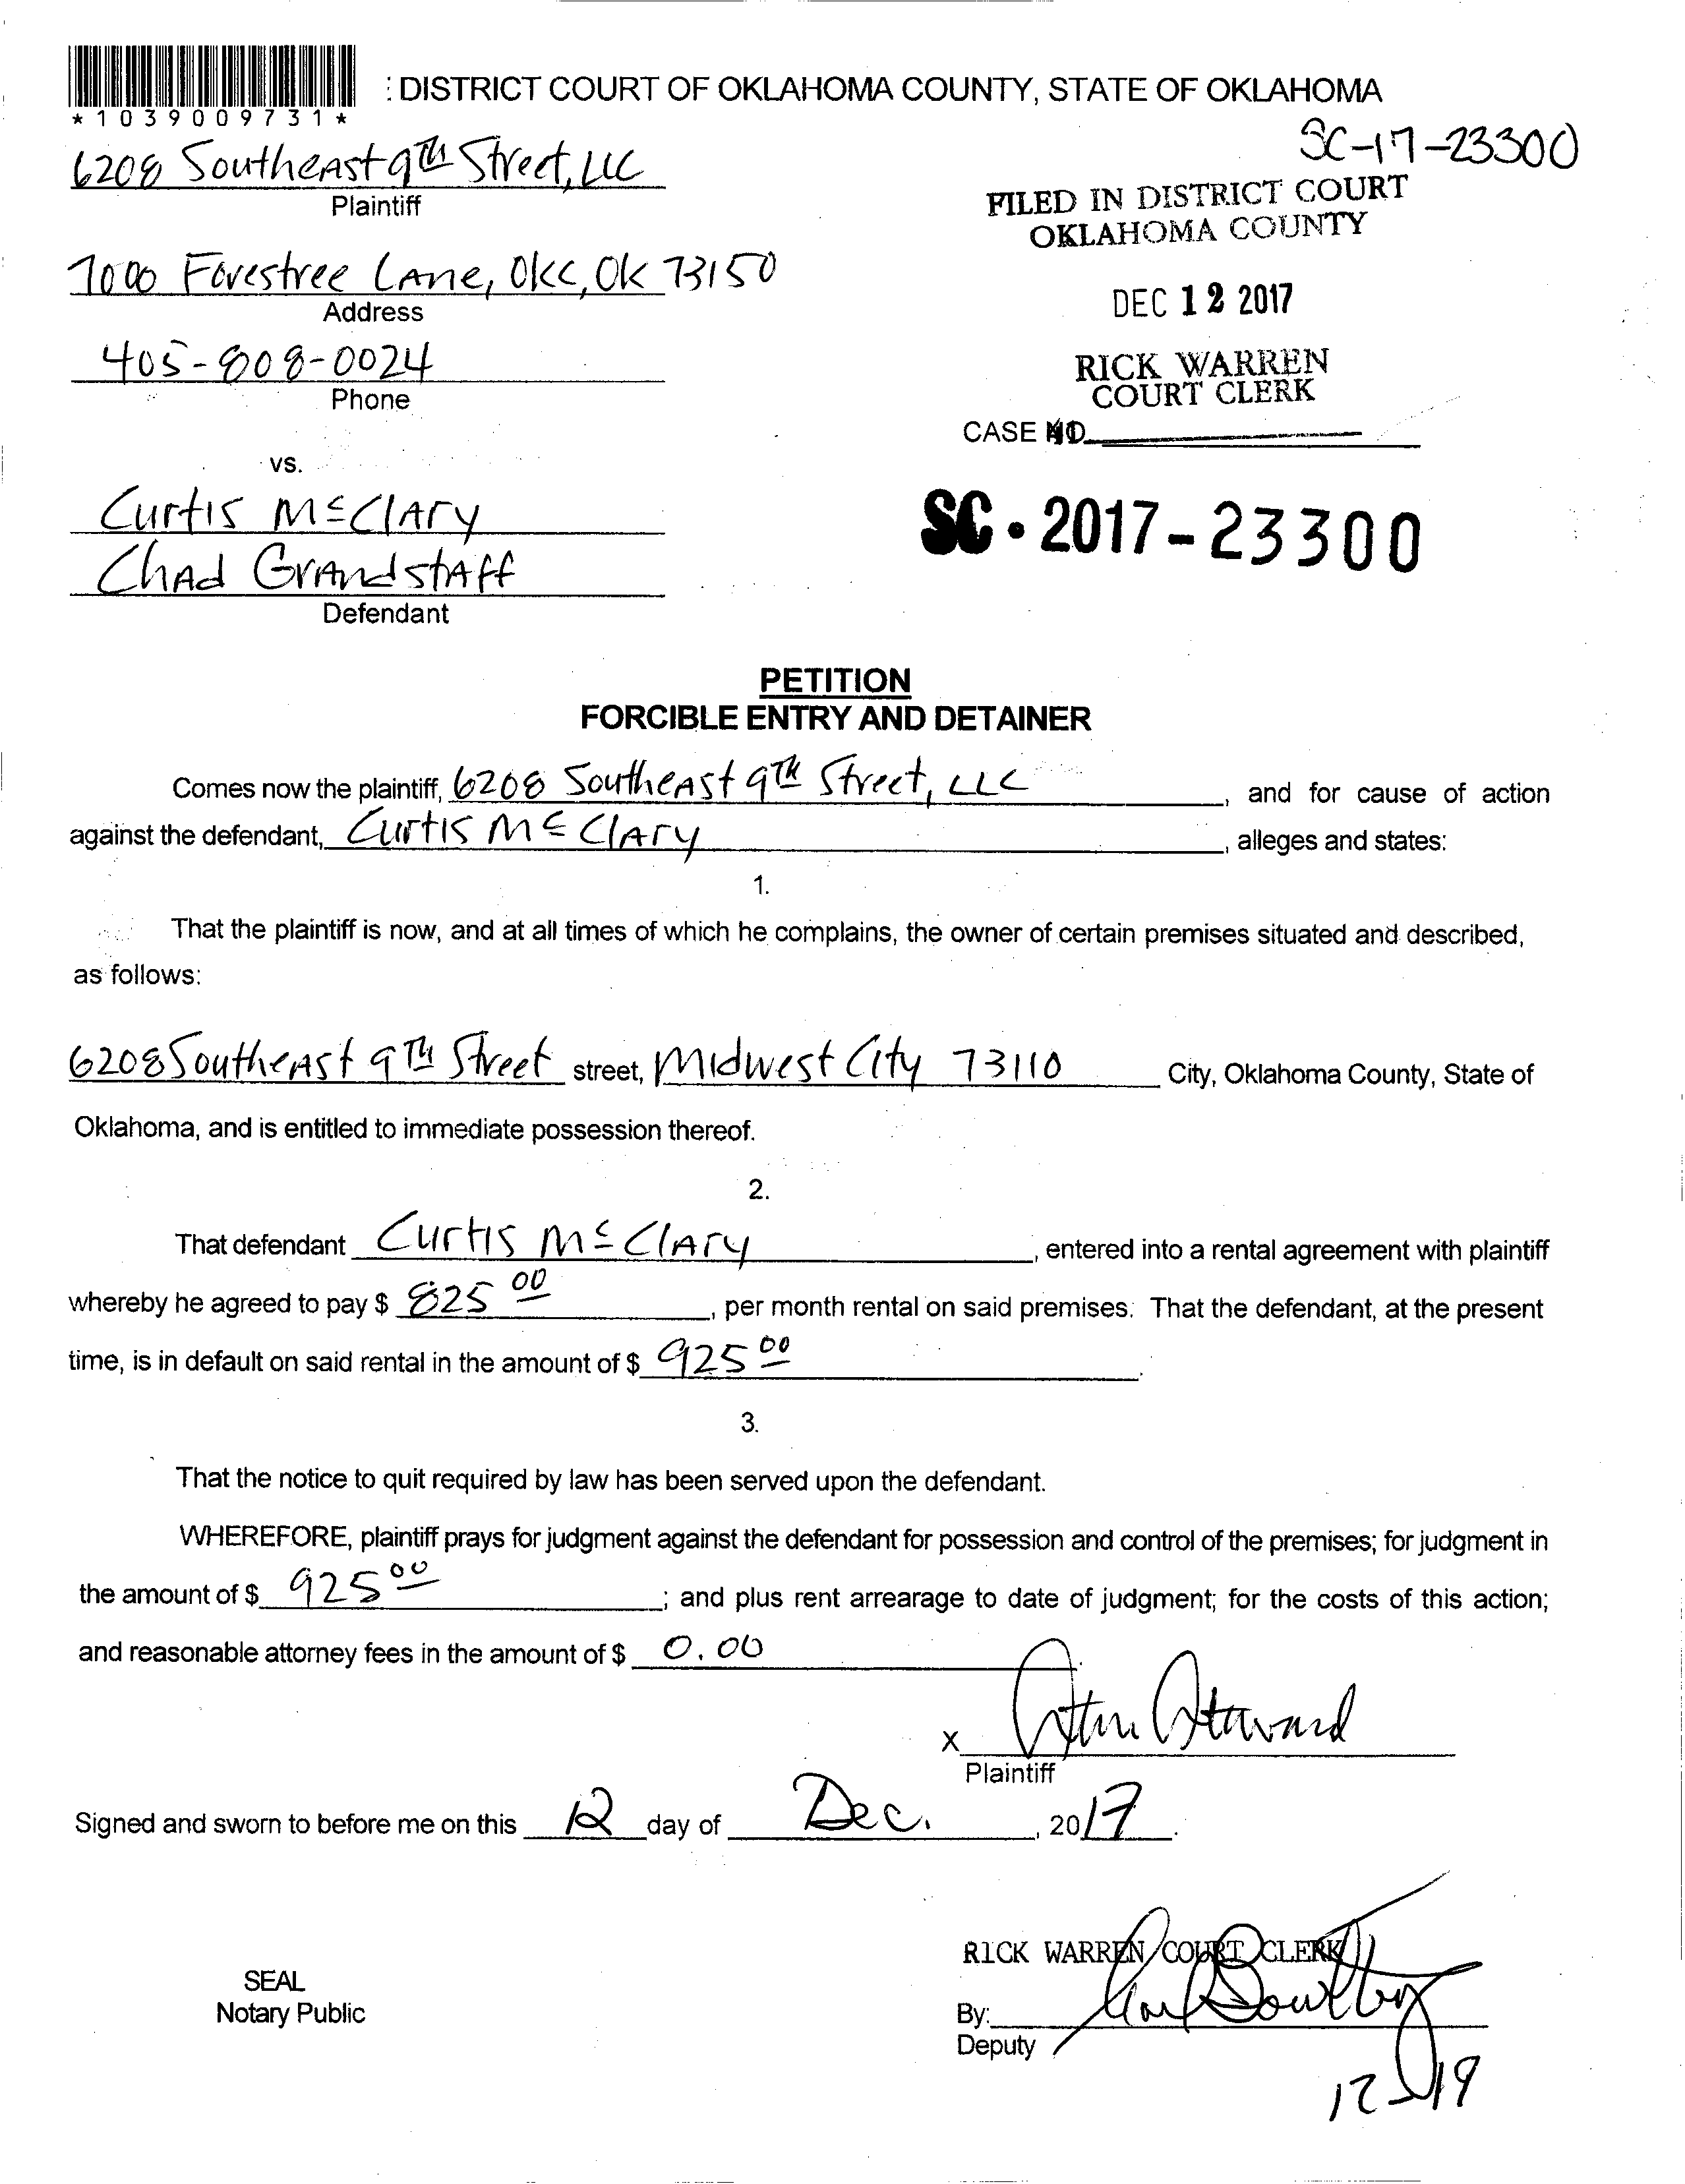 : DISTRICT COURT OF OKLAHOMA COUNTY, STATE OF OKLAHOMA
*1039009731*
SC-17-23300
6208 Southeast 9th Street, LLC
Plaintiff
FILED IN DISTRICT COURT
OKLAHOMA COUNTY
7000 Forestree Lane, OKC, OK 73150
Address
DEC 12 2017
405-808-0024
Phone
RICK WARREN
COURT CLERK
CASE NO.
vs.
Curtis McClary
SC-2017-23300
Chad Grandstaff
Defendant
PETITION
FORCIBLE ENTRY AND DETAINER
Comes now the plaintiff, 6208 Southeast 9th Street, LLC, and for cause of action
against the defendant, Curtis McClary, alleges and states:
1.
That the plaintiff is now, and at all times of which he complains, the owner of certain premises situated and described,
as follows:
6208 Southeast 9th Street street, Midwest City 73110 City, Oklahoma County, State of
Oklahoma, and is entitled to immediate possession thereof.
2.
That defendant Curtis McClary, entered into a rental agreement with plaintiff
whereby he agreed to pay $ 825 00, per month rental on said premises. That the defendant, at the present
time, is in default on said rental in the amount of $ 925 00.
3.
That the notice to quit required by law has been served upon the defendant.
WHEREFORE, plaintiff prays for judgment against the defendant for possession and control of the premises; for judgment in
the amount of $ 925 00; and plus rent arrearage to date of judgment; for the costs of this action;
and reasonable attorney fees in the amount of $ 0.00
X
Plaintiff
Signed and sworn to before me on this 12 day of Dec., 2017.
RICK WARREN, COURT CLERK
SEAL
Notary Public
By:
Deputy